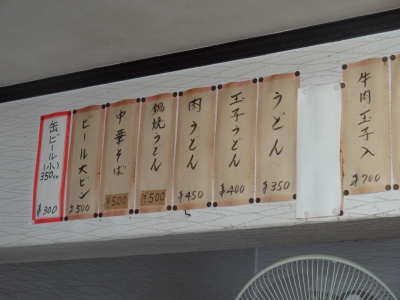 牛肉玉子入
¥700
うどん
¥350
玉子うどん
¥400
肉うどん
¥450
鍋焼うどん
¥500
中華そば
¥500
ビール大ビン
¥500
缶ビール(小)
350cc
¥300